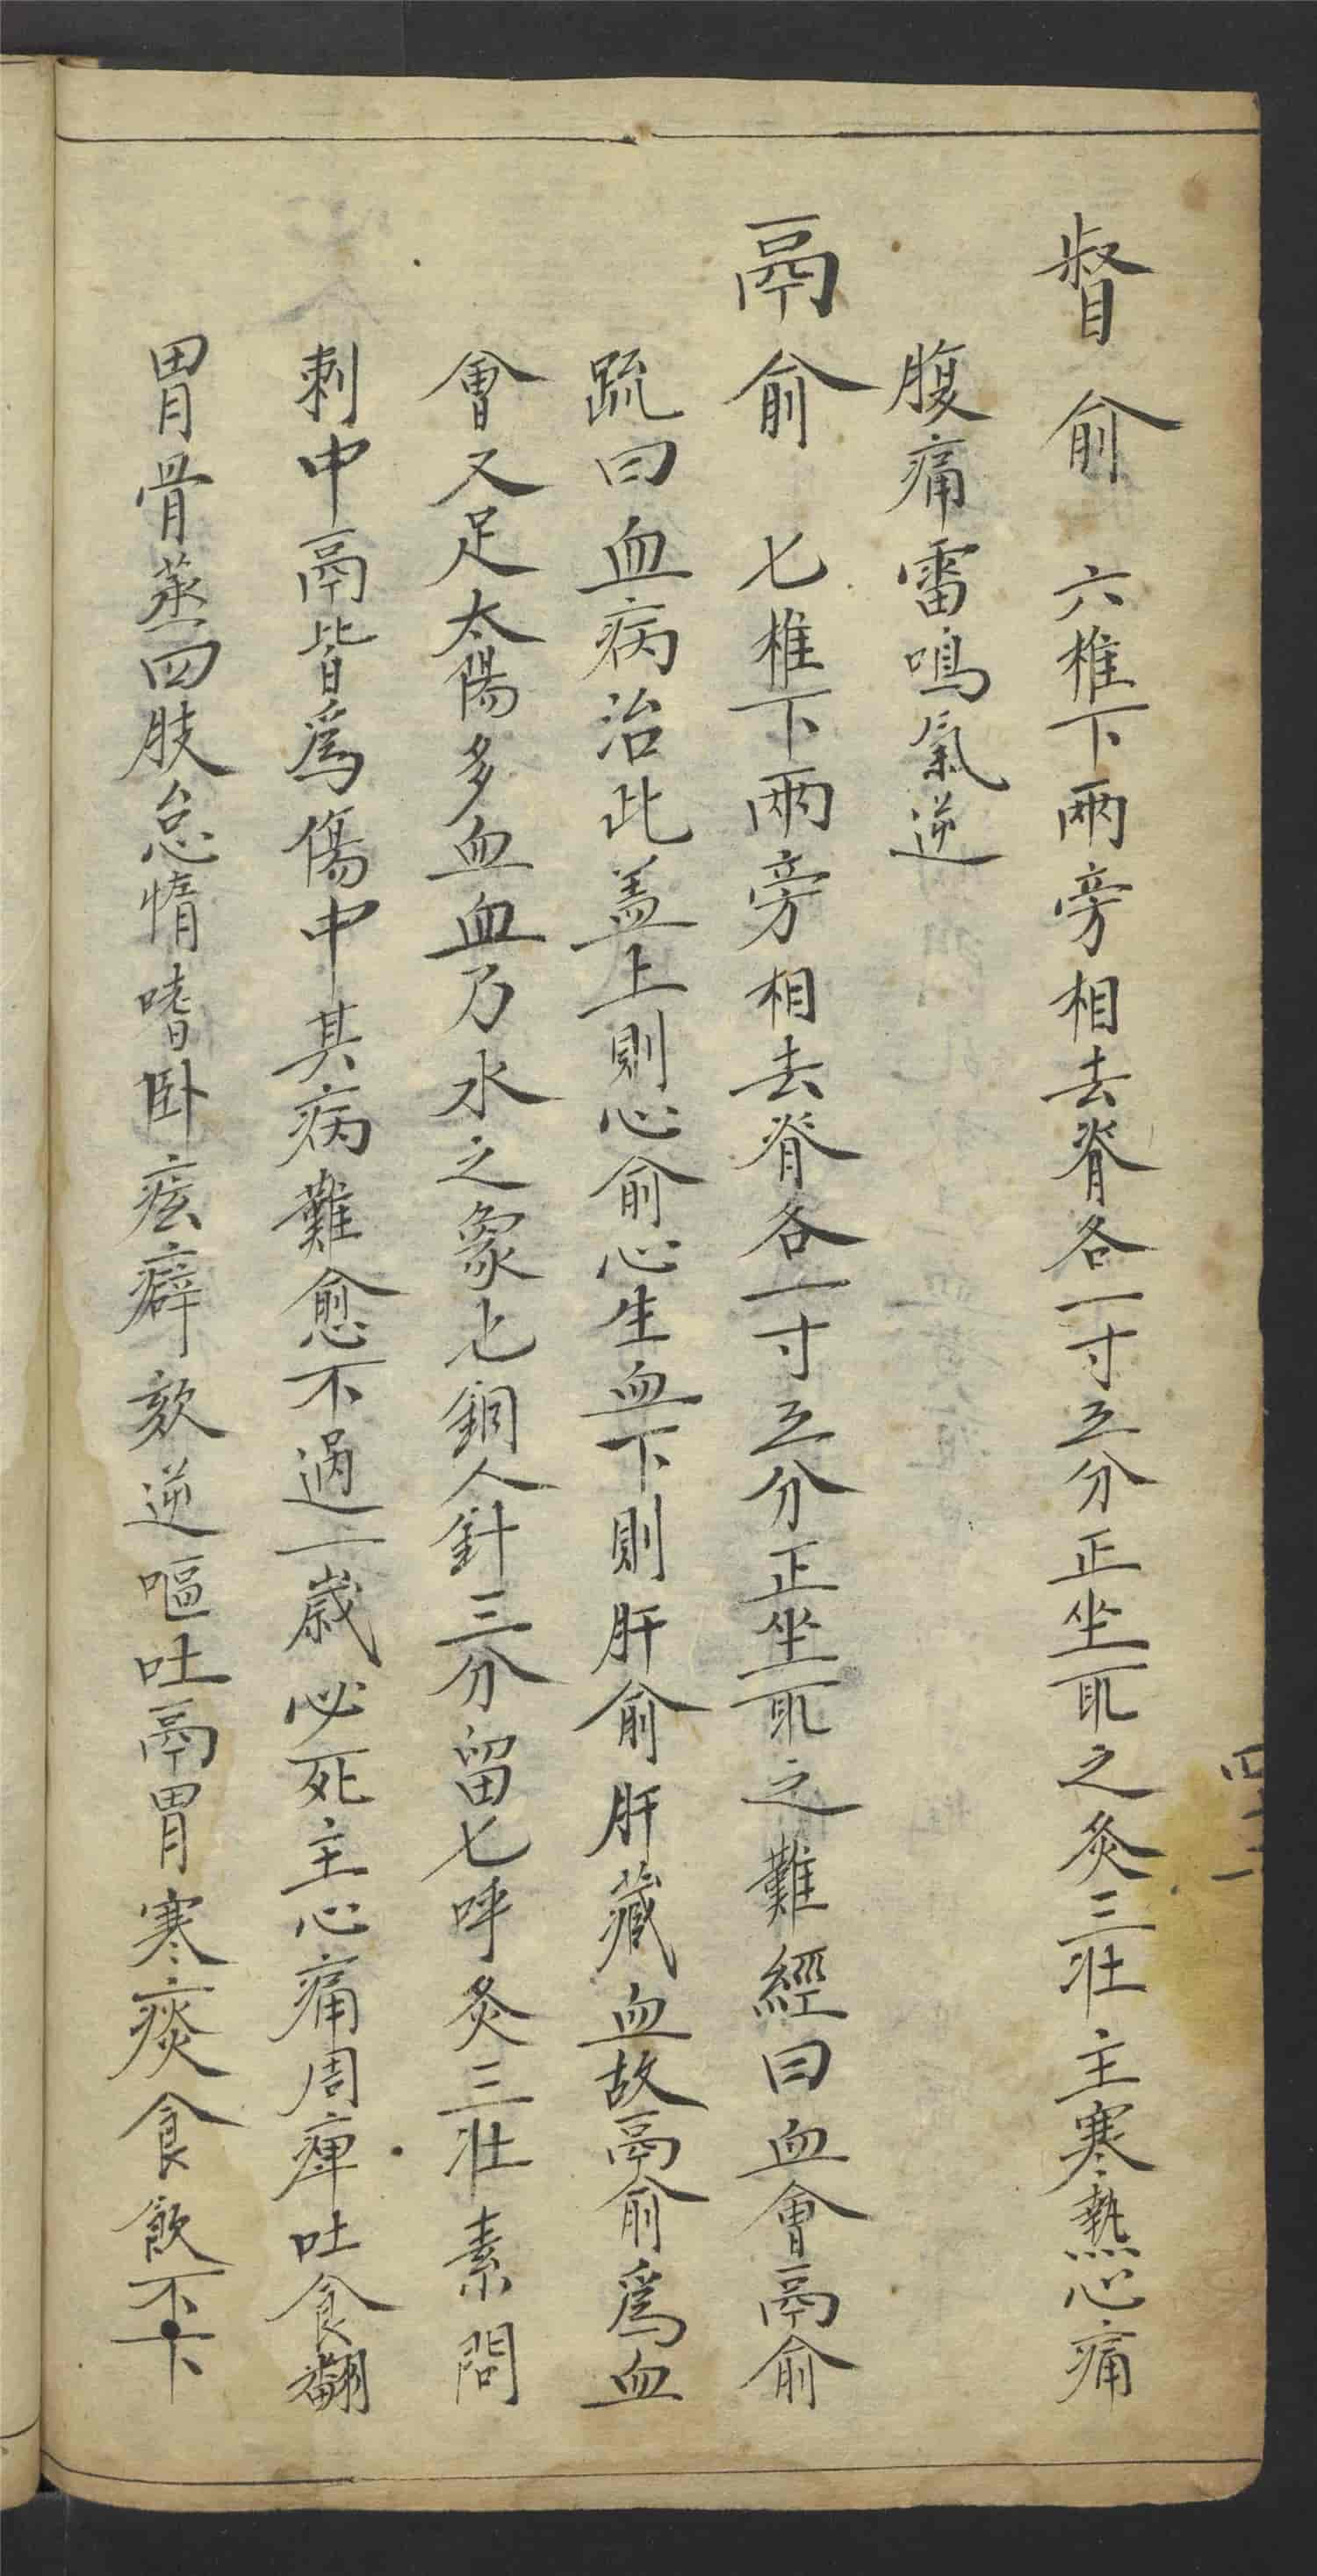 督俞 六椎下兩旁相去脊各一寸五分正坐取之灸三壯主寒熱心痛
腹痛雷鳴氣逆
鬲俞 七椎下兩旁相去脊各一寸五分正坐取之難經曰血會鬲俞
疏曰血病治此盖上則心俞心生血下則肝俞肝藏血故鬲俞爲血
會又足太陽多血血乃水之象也銅人針三分留七呼灸三壯素問
刺中鬲皆爲傷中其病難愈不過一歲必死主心痛周痺吐食翻
胃骨蒸四肢怠惰嗜卧痃癖欬逆嘔吐鬲胃寒痰食飲不下